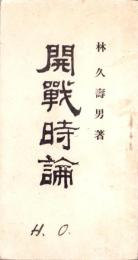 林久壽男著
開戰時論
H. O.